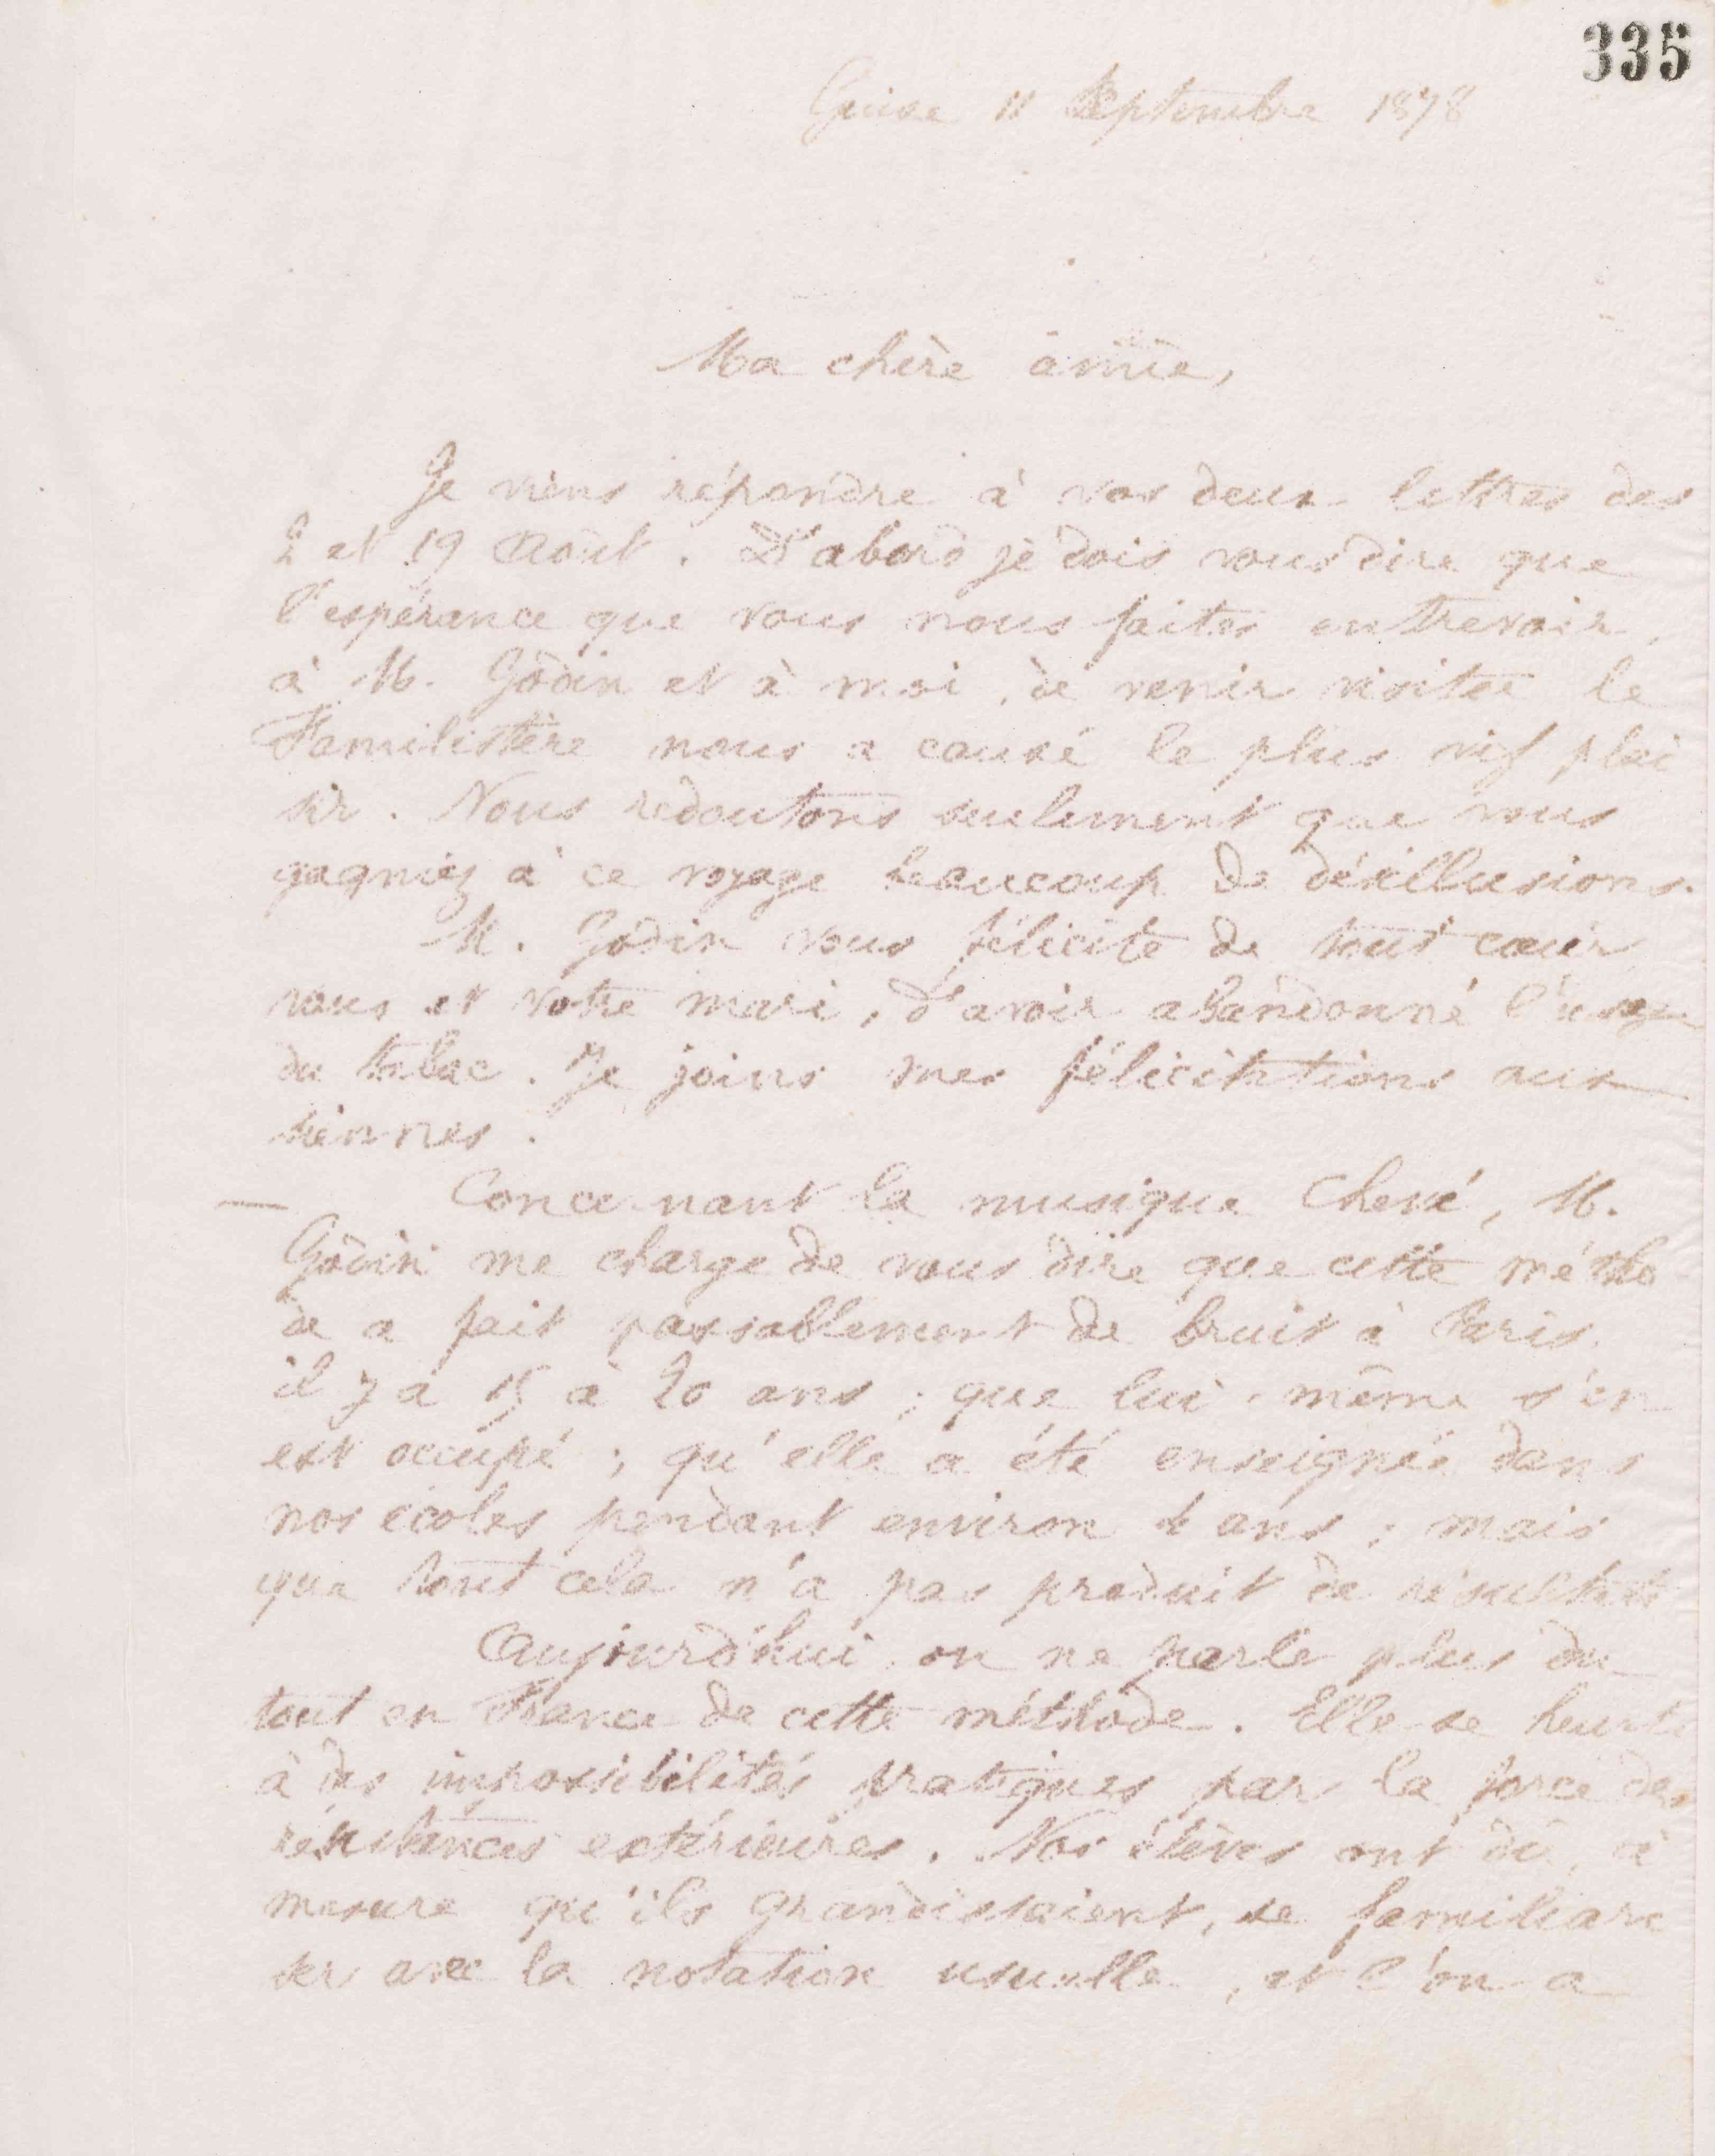 335
Guise 11 Septembre 1878
Ma chère amie,
Je viens répondre à vos deux lettres des
2 et 19 Août. D'abord je dois vous dire que
l'espérance que vous nous faites entrevoir,
à M. Godin et à moi, de venir visiter le
Familistère nous a causé le plus vif plai
sir. Nous redoutons seulement que vous
gagniez à ce voyage beaucoup de désillusions.
M. Godin vous félicite de tout cœur
vous et votre mari, d'avoir abandonné l'usage
du tabac. Je joins mes félicitations aux
siennes.
— Concernant la musique Chevé, M.
Godin me charge de vous dire que cette métho
de a fait passablement de bruit à Paris
il y a 15 à 20 ans ; que lui-même s'en
est occupé ; qu'elle a été enseignée dans
nos écoles pendant environ ans ; mais
que tout cela n'a pas produit de résultats
Aujourd'hui on ne parle plus du
tout en France de cette méthode. Elle se heurte
à des impossibilités pratiques par la force des
résistances extérieures. Nos élèves ont dû, à
mesure qu'ils grandissaient, se familiari
ser avec la notation usuelle, et l'on a